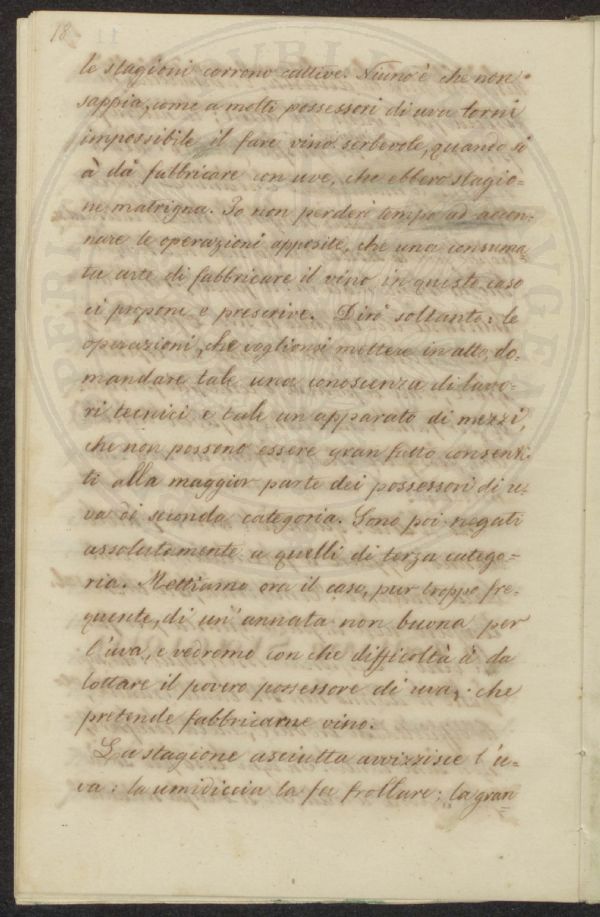 18
le stagioni corrono cattive. Niuno è che non
sappia, come a molti possessori di uva torni
impossibile il fare vino serbevole, quando si
à da fabbricare con uve, che ebbero stagio=
ne matrigna. Io non perderò tempo ad accen=
nare le operazioni apposite, che una consuma=
ta arte di fabbricare il vino in questo caso
ci propone e prescrive. Dirò soltanto: le
operazioni, che voglionsi mettere in atto, do=
mandare tale una conoscenza di lavo=
ri tecnici e tale un apparato di mezzi,
che non possono essere gran fatto consenti=
ti alla maggior parte dei possessori di u=
va di seconda categoria. Sono poi negati
assolutamente a quelli di terza catego=
ria. Mettiamo ora il caso, pur troppo fre=
quente, di un'annata non buona per
l'uva, e vedremo con che difficoltà à da
lottare il povero possessore di uva, che
pretende fabbricarne vino.
La stagione asciutta avvizzisce l'u=
va: la umidiccia la fa frollare: la gran=